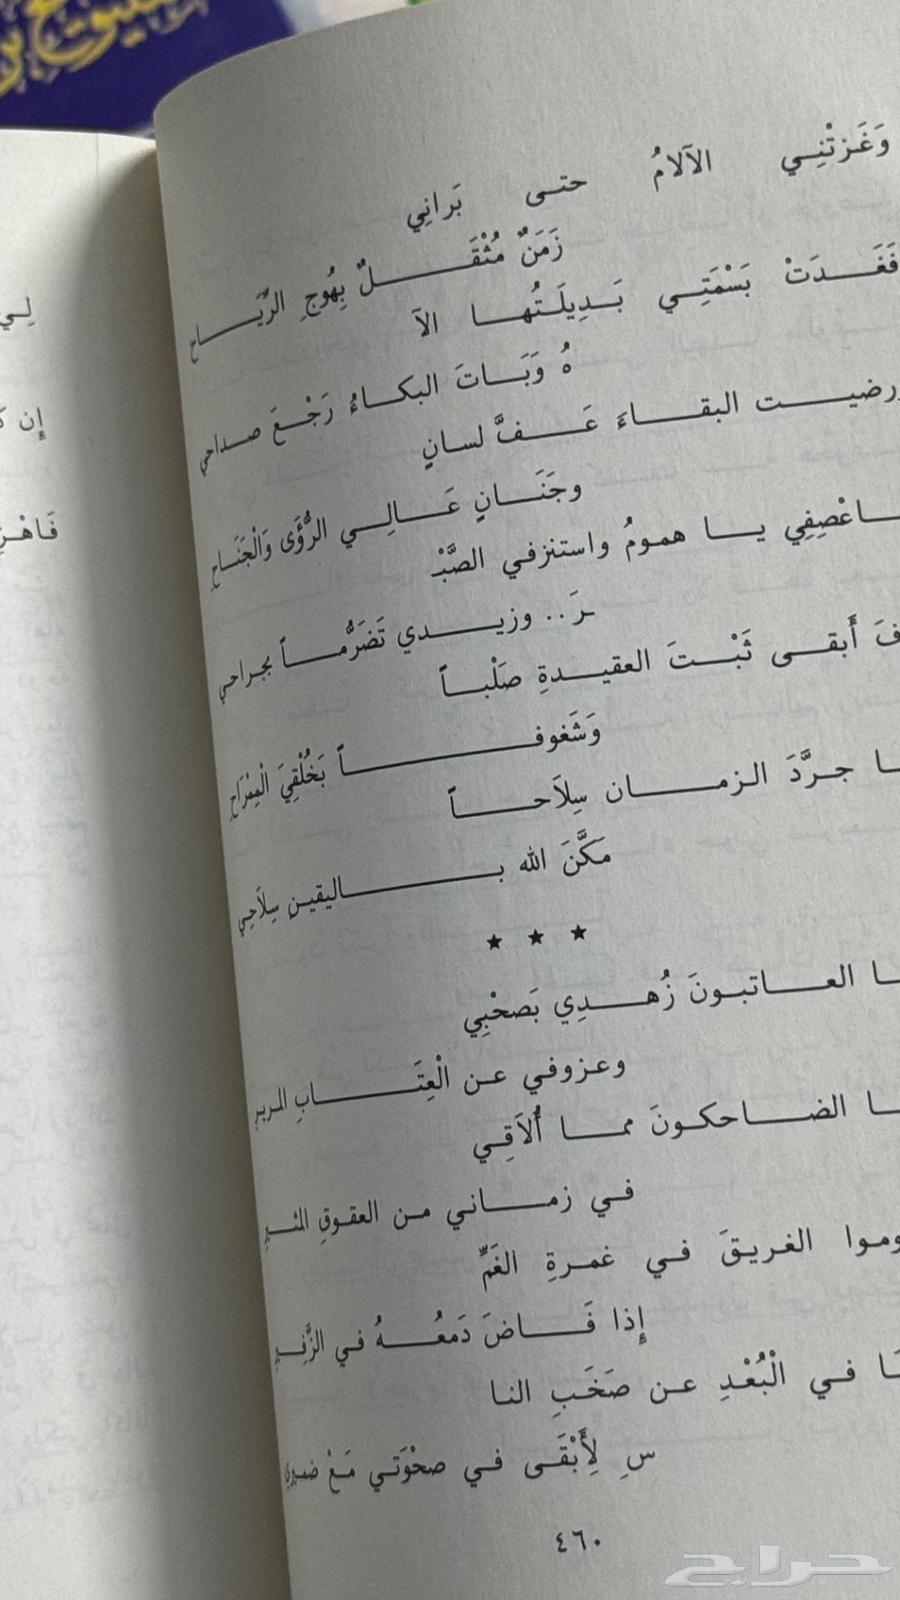 وَغَزتْنِي الآلامُ حتى بَرانِي
زَمَنٌ مُثْقَلٌ بِهُوجِ الرِّيَاح
فَغَدَتْ بَسْمَتِي بَدِيلَتُها الآ
هُ وَبَاتَ البكاءُ رَجْعَ صداحي
ورضيت البقاءَ عَفَّ لسانٍ
وجَنَانٍ عَالِي الرُّؤَى وَالْجَنَاحِ
اعْصِفِي يا همومُ واستنزفي الصَّبْـ
ـرَ.. وزيدي تَضَرُّماً بجراحي
فَ أَبقى ثَبْتَ العقيدةِ صَلْباً
وَشَغوفاً بَخُلْقِيَ الْمِمْرَاحِ
ا جرَّدَ الزمان سِلاَحاً
مَكَّنَ الله باليقينِ سِلاَحِي
★ ★ ★
ا العاتبونَ زُهدِي بَصحْبِي
وعزوفي عن الْعِتَابِ المرير
ا الضاحكونَ مما أُلاَقِي
في زماني من العقوقِ المثيرِ
وموا الغريقَ في غمرةِ الغَمِّ
إِذا فَاضَ دَمعُهُ في الزَّفِيرِ
نَا في الْبُعْدِ عن صَخَبِ النا
سِ لِأَبْقَى في صحْوَتي مَعْ ضميري
٤٦٠
لِي
إِن ك
فَاهْنَ
حراج